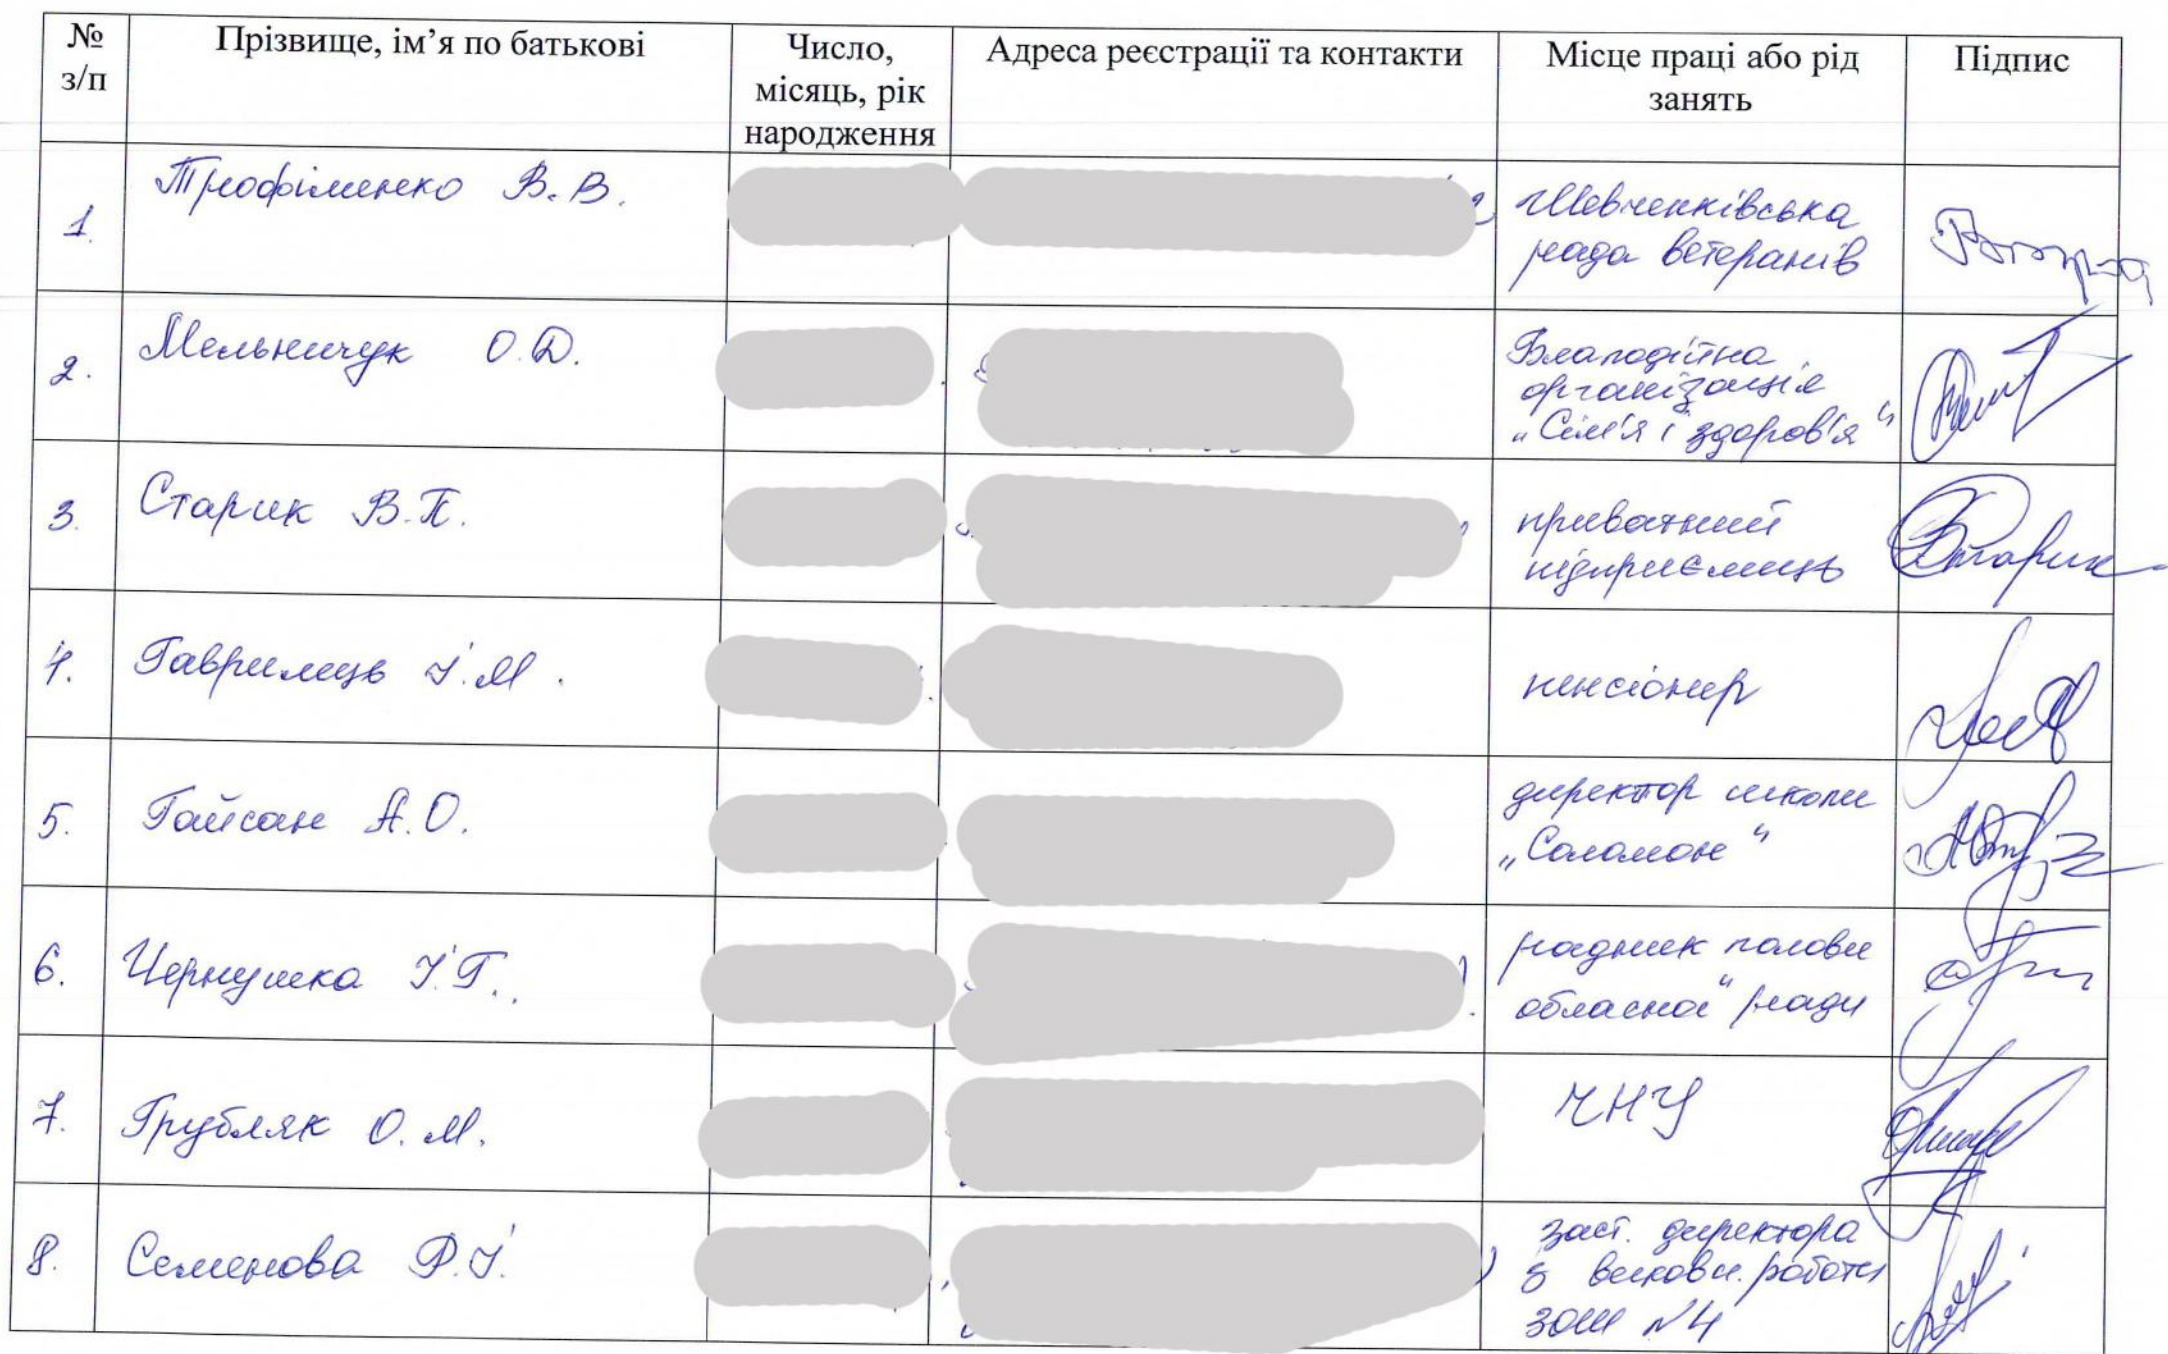 № з/п
Прізвище, ім’я по батькові
Число, місяць, рік народження
Адреса реєстрації та контакти
Місце праці або рід занять
Підпис
1.
Трофіменко В.В.
Шевченківська
рада ветеранів
2.
Мельничук О.Д.
Благодійна
організація
„Сім'я і здоров'я“
3.
Старик В.П.
приватний
підприємець
Старик
4.
Гаврилець І.М.
пенсіонер
5.
Гайсан А.О.
директор школи
„Соломон“
6.
Чернушка І.Г.
радник голови
обласної ради
7.
Грубляк О.М.
ЧНУ
8.
Семенова Р.І.
заст. директора
з вихови. роботи
ЗОШ №4